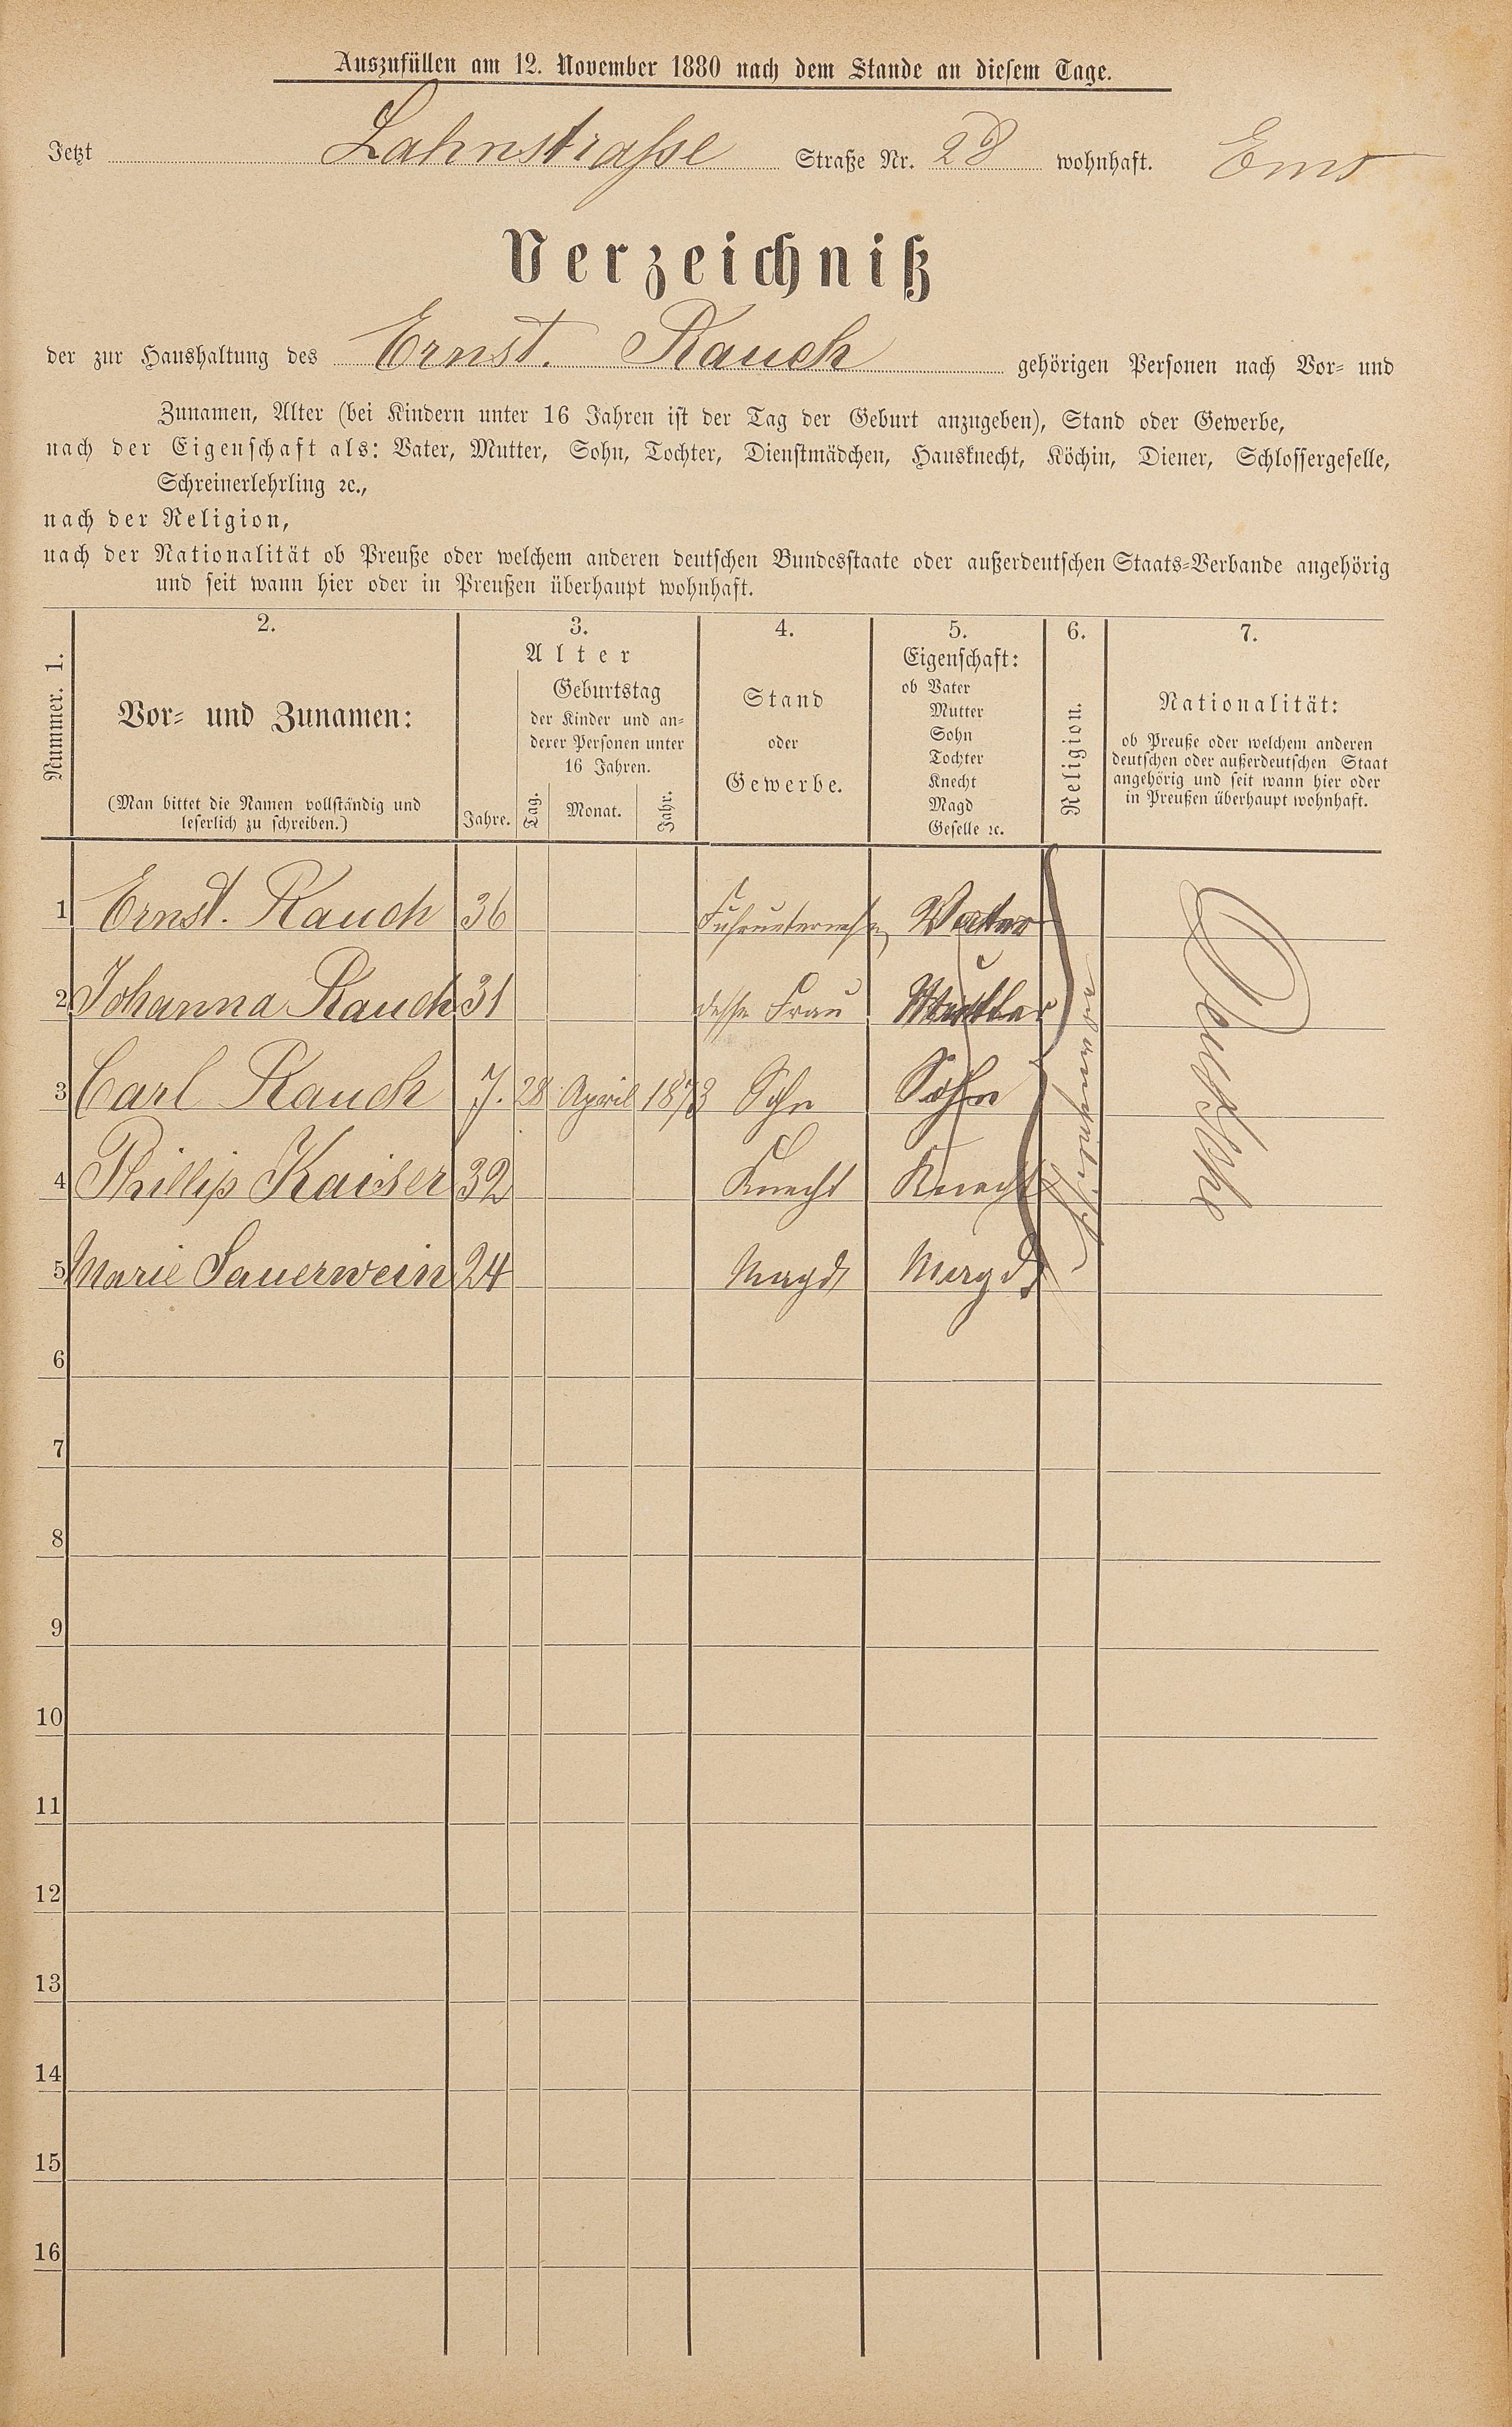 Auszufüllen am 12. November 1880 nach dem Stande an diesem Tage.
Jetzt Lahnstraße Straße Nr. 28 wohnhaft. Ems
Verzeichniß
der zur Haushaltung des Ernst. Rauch gehörigen Personen nach Vor- und
Zunamen, Alter (bei Kindern unter 16 Jahren ist der Tag der Geburt anzugeben), Stand oder Gewerbe,
nach der Eigenschaft als: Vater, Mutter, Sohn, Tochter, Dienstmädchen, Hausknecht, Köchin, Diener, Schlossergeselle,
Schreinerlehrling ꝛc.,
nach der Religion,
nach der Nationalität ob Preuße oder welchem anderen deutschen Bundesstaate oder außerdeutschen Staats-Verbande angehörig
und seit wann hier oder in Preußen überhaupt wohnhaft.
Nummer. 1.
2.
Vor- und Zunamen:
(Man bittet die Namen vollständig und
leserlich zu schreiben.)
3.
Alter
Jahre.
Geburtstag
der Kinder und an-
derer Personen unter
16 Jahren.
Tag. Monat. Jahr.
4.
Stand
oder
Gewerbe.
5.
Eigenschaft:
ob Vater
Mutter
Sohn
Tochter
Knecht
Magd
Geselle ꝛc.
6.
Religion.
7.
Nationalität:
ob Preuße oder welchem anderen
deutschen oder außerdeutschen Staat
angehörig und seit wann hier oder
in Preußen überhaupt wohnhaft.
1 Ernst. Rauch 36 Vater
2 Johanna Rauch 31 dessen Frau Mutter
3 Carl Rauch 7. 28 April 1873 Sohn Sohn
4 Phillip Kaiser 32 Knecht Knecht
5 Marie Sauerwein 24 Magd Magd
evangelisch
Deutsche
6
7
8
9
10
11
12
13
14
15
16